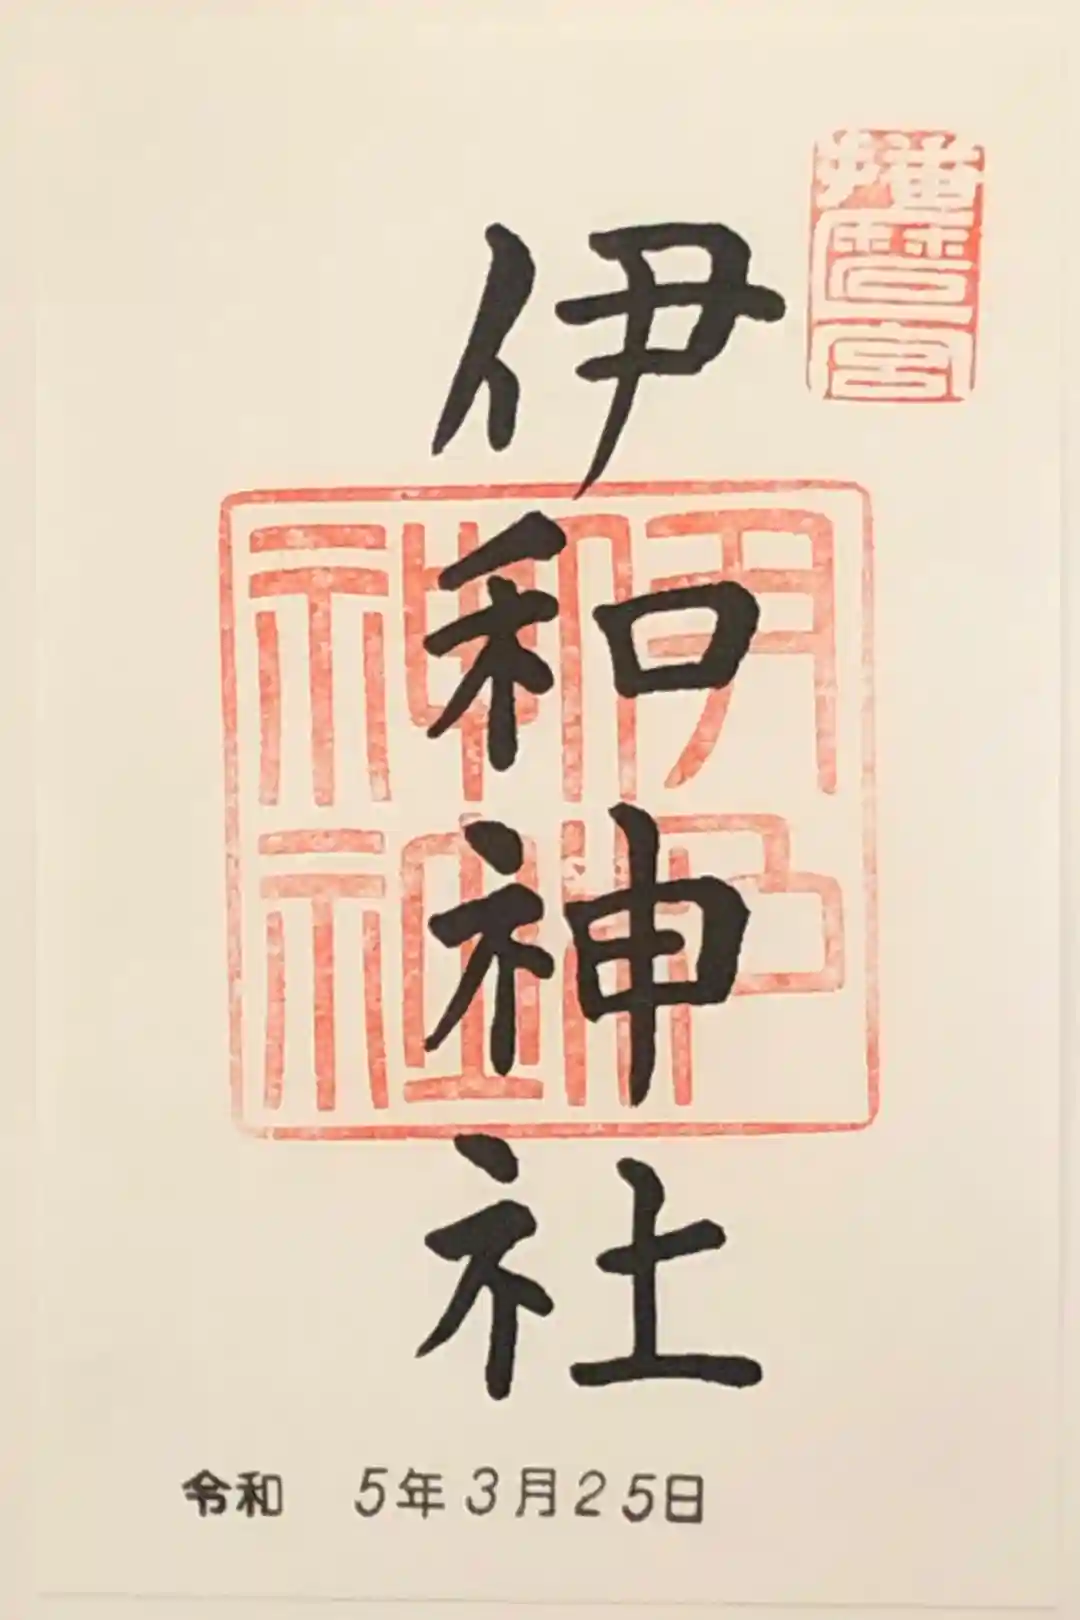 播磨一宮
伊和神社
伊和
神社
令和 5年3月25日